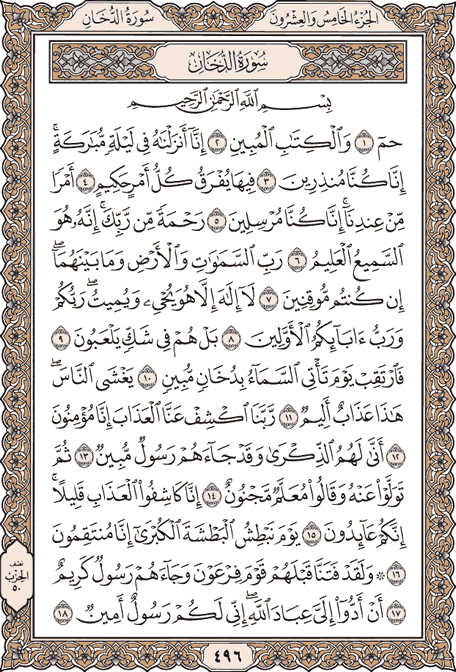 الجزء الخامس والعشرون
سورة الدخان
سُورَةُ الدُّخَانِ
بِسْمِ اللَّهِ الرَّحْمَٰنِ الرَّحِيمِ
حمٓ ١ وَالْكِتَابِ الْمُبِينِ ٢ إِنَّا أَنزَلْنَاهُ فِي لَيْلَةٍ مُّبَارَكَةٍ ۚ
إِنَّا كُنَّا مُنذِرِينَ ٣ فِيهَا يُفْرَقُ كُلُّ أَمْرٍ حَكِيمٍ ٤ أَمْرًا
مِّنْ عِندِنَا ۚ إِنَّا كُنَّا مُرْسِلِينَ ٥ رَحْمَةً مِّن رَّبِّكَ ۚ إِنَّهُ هُوَ
السَّمِيعُ الْعَلِيمُ ٦ رَبِّ السَّمَاوَاتِ وَالْأَرْضِ وَمَا بَيْنَهُمَا ۖ
إِن كُنتُم مُّوقِنِينَ ٧ لَا إِلَٰهَ إِلَّا هُوَ يُحْيِي وَيُمِيتُ ۖ رَبُّكُمْ
وَرَبُّ ءَابَائِكُمُ الْأَوَّلِينَ ٨ بَلْ هُمْ فِي شَكٍّ يَلْعَبُونَ ٩
فَارْتَقِبْ يَوْمَ تَأْتِي السَّمَاءُ بِدُخَانٍ مُّبِينٍ ١٠ يَغْشَى النَّاسَ ۖ
هَٰذَا عَذَابٌ أَلِيمٌ ١١ رَّبَّنَا اكْشِفْ عَنَّا الْعَذَابَ إِنَّا مُؤْمِنُونَ
١٢ أَنَّىٰ لَهُمُ الذِّكْرَىٰ وَقَدْ جَاءَهُمْ رَسُولٌ مُّبِينٌ ١٣ ثُمَّ
تَوَلَّوْا عَنْهُ وَقَالُوا مُعَلَّمٌ مَّجْنُونٌ ١٤ إِنَّا كَاشِفُوا الْعَذَابِ قَلِيلًا ۚ
إِنَّكُمْ عَائِدُونَ ١٥ يَوْمَ نَبْطِشُ الْبَطْشَةَ الْكُبْرَىٰ إِنَّا مُنتَقِمُونَ
١٦ ۞ وَلَقَدْ فَتَنَّا قَبْلَهُمْ قَوْمَ فِرْعَوْنَ وَجَاءَهُمْ رَسُولٌ كَرِيمٌ
١٧ أَنْ أَدُّوا إِلَيَّ عِبَادَ اللَّهِ ۖ إِنِّي لَكُمْ رَسُولٌ أَمِينٌ ١٨
نصف
الحزب
٥٠
٤٩٦